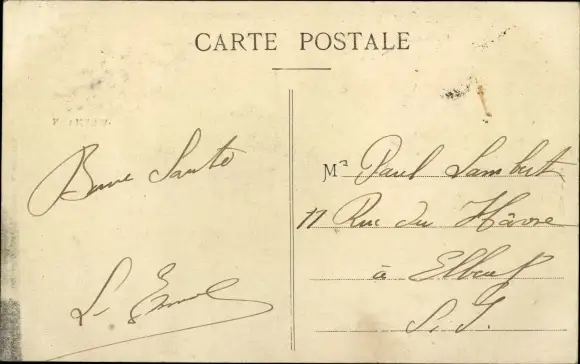 CARTE POSTALE
Bonne Santé
M Paul Lambert
11 Rue du Hâvre
à Elbeuf
S. I.